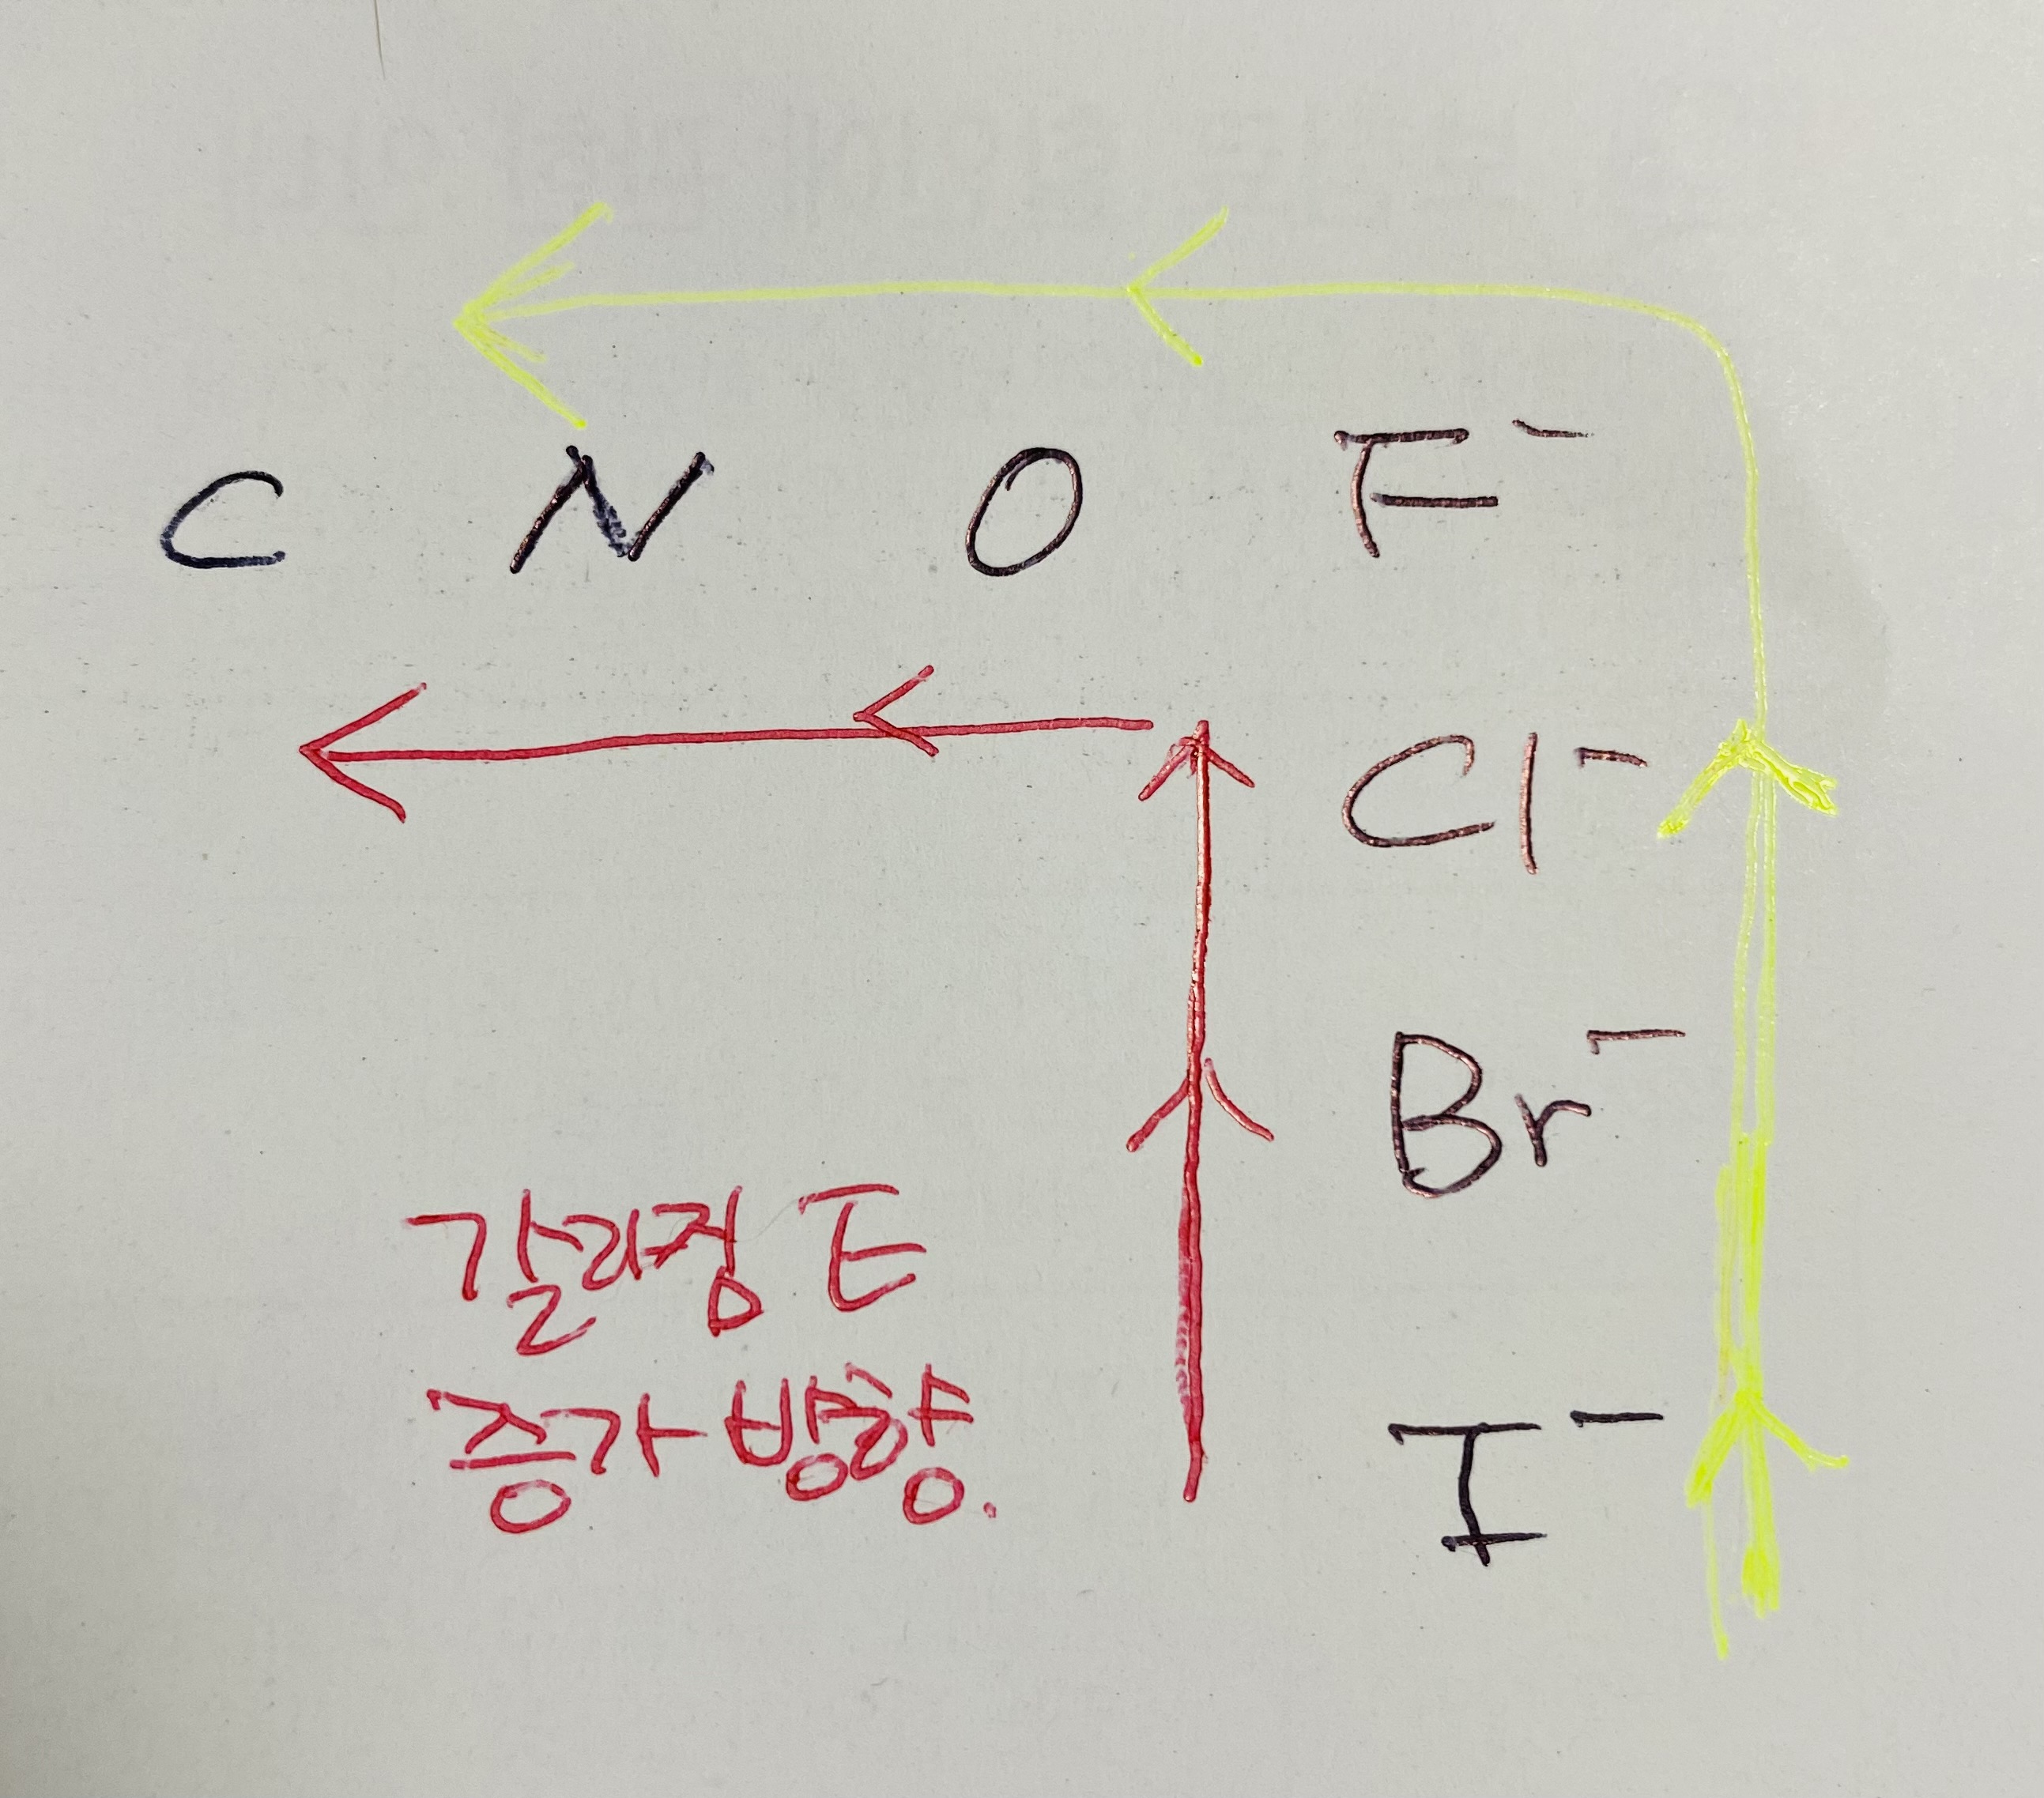 C N O F⁻
Cl⁻
Br⁻
갈라짐 E
증가 방향.
I⁻